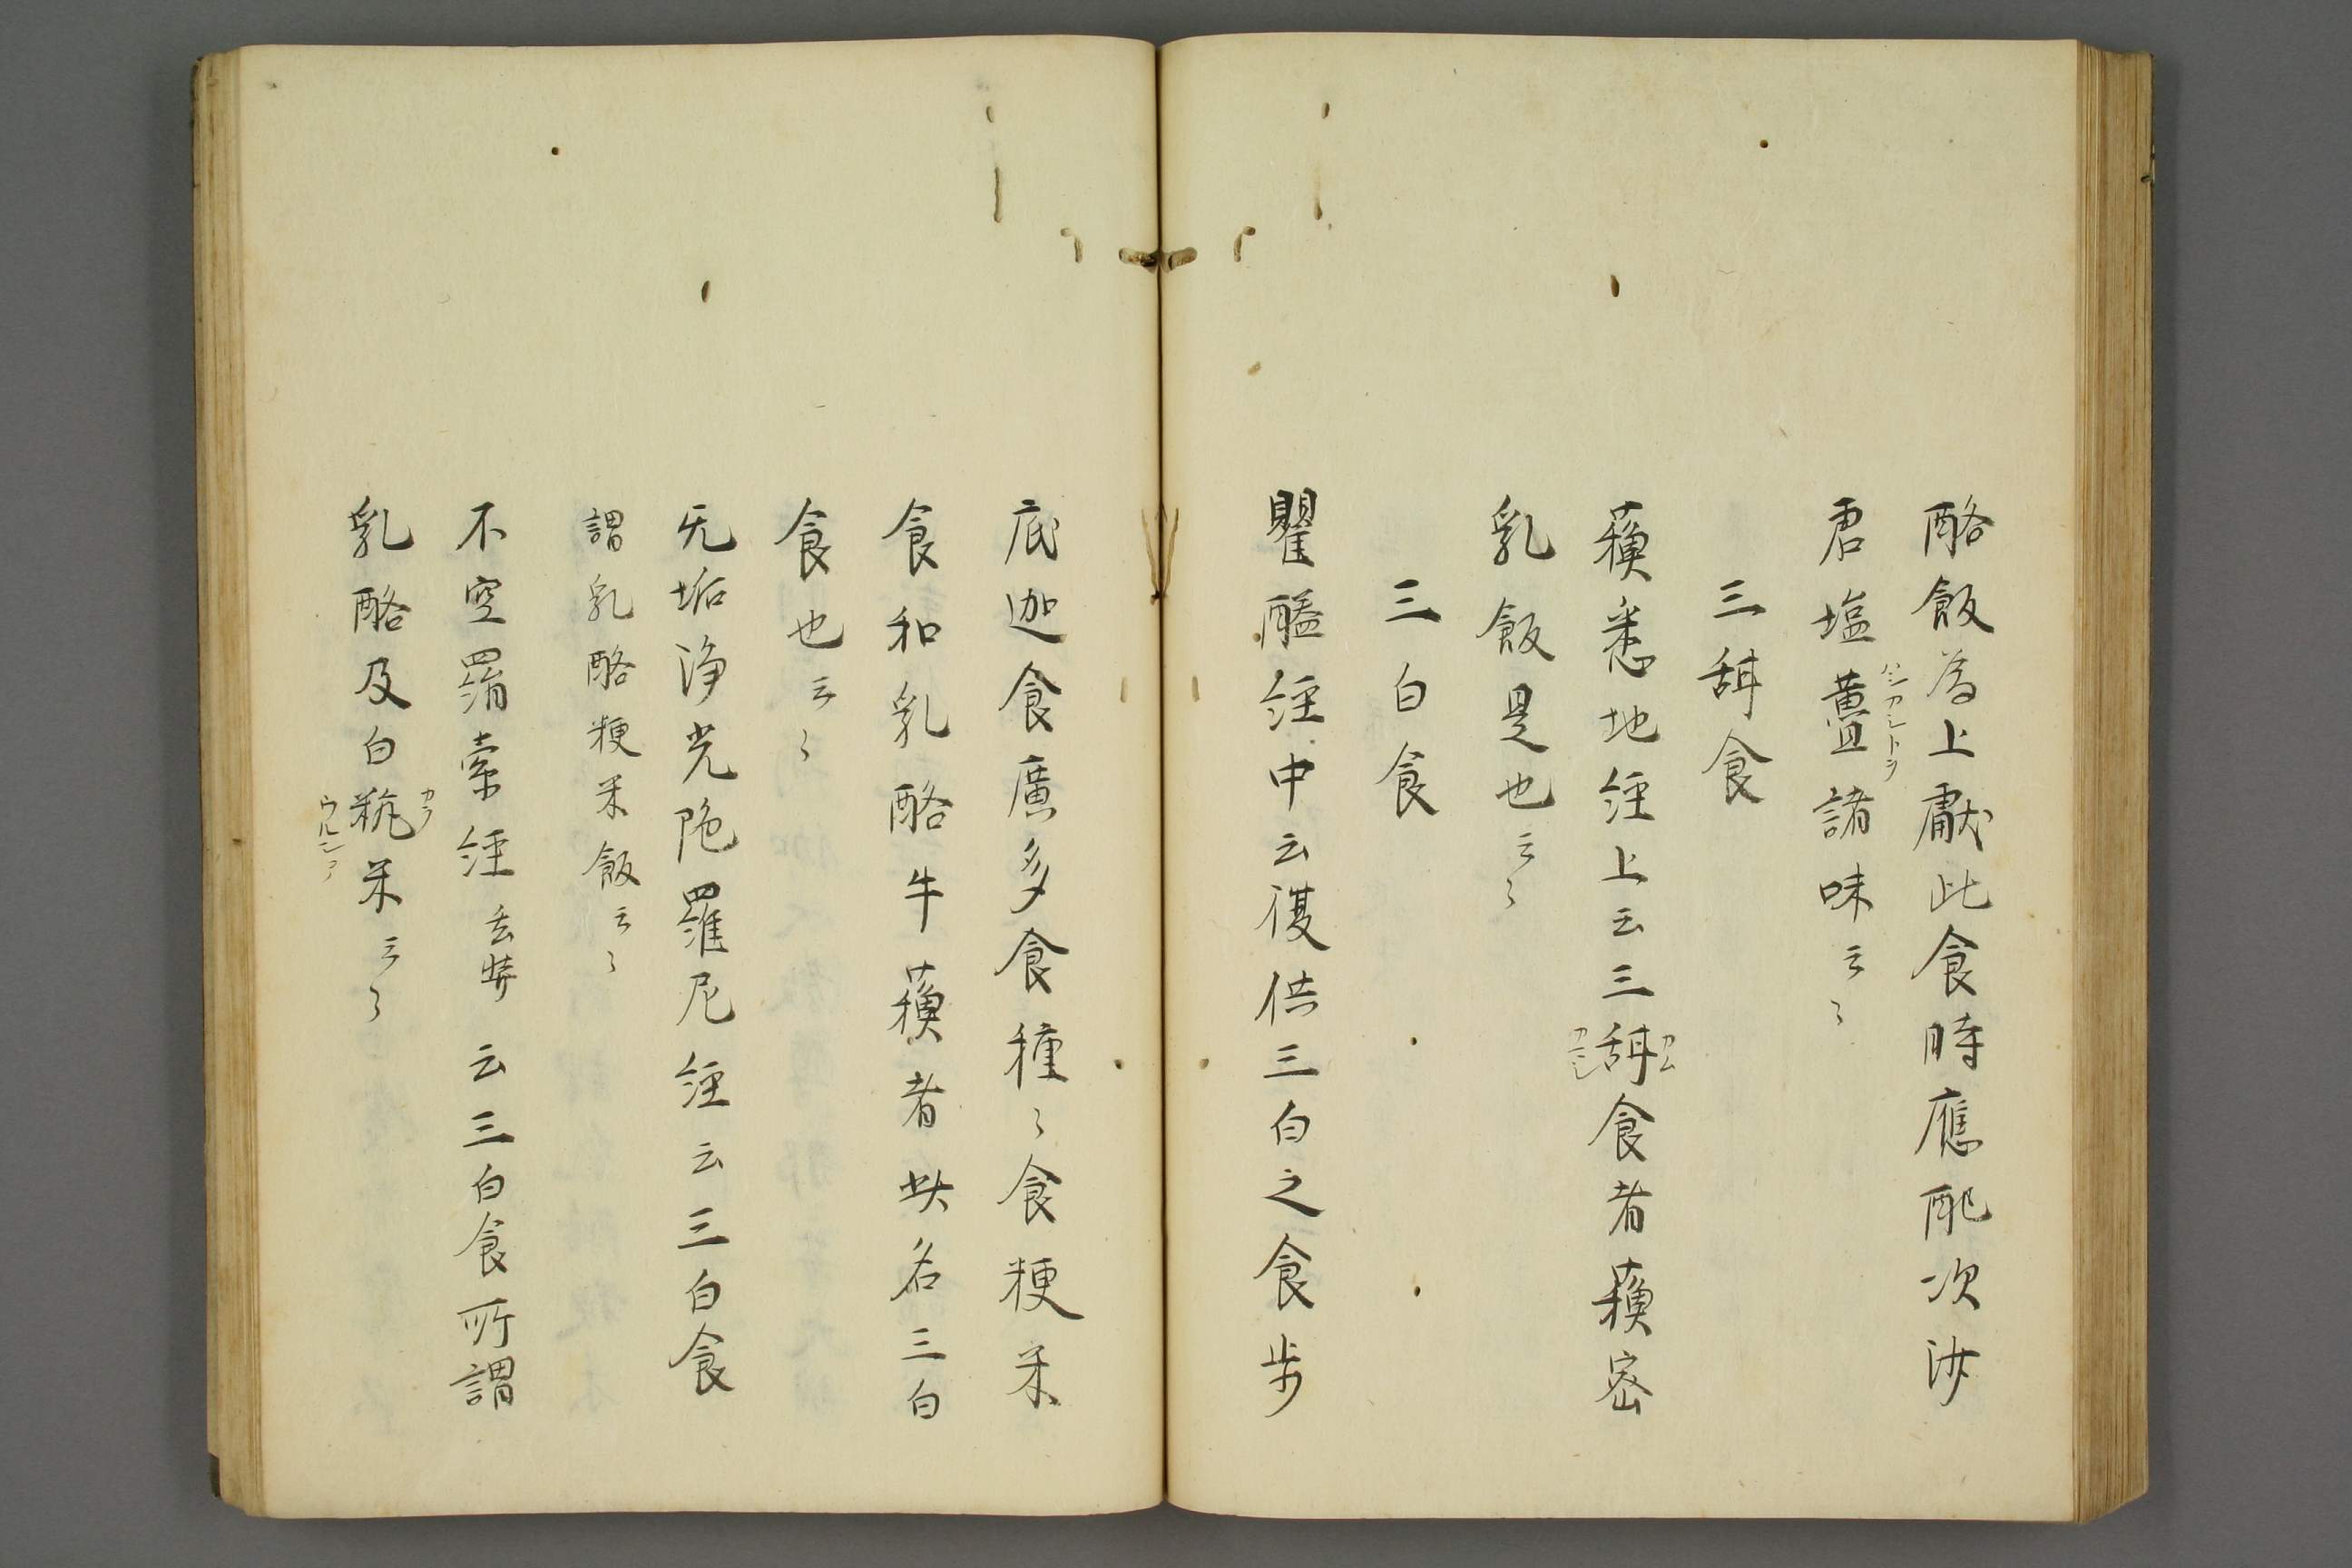 酪飯為上獻此食時應配次沙
君塩薑諸味云々
三甜食
蘓悉地経上云三甜食者蘓蜜
乳飯是也云々
三白食
瞿醯経中云復供三白之食步
底迦食廣多食種々食粳米
食和乳酪牛蘓者此名三白
食也云々
无垢浄光陁羅尼経云三白食
謂乳酪粳米飯云々
不空羂索経 云三白食所謂
乳酪及白秔米云々